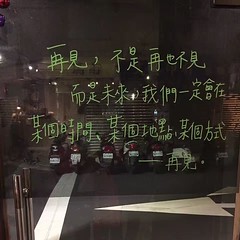 再見，不是再也不見
而是未來，我們一定會在
某個時間、某個地點、某個方式
——再見.